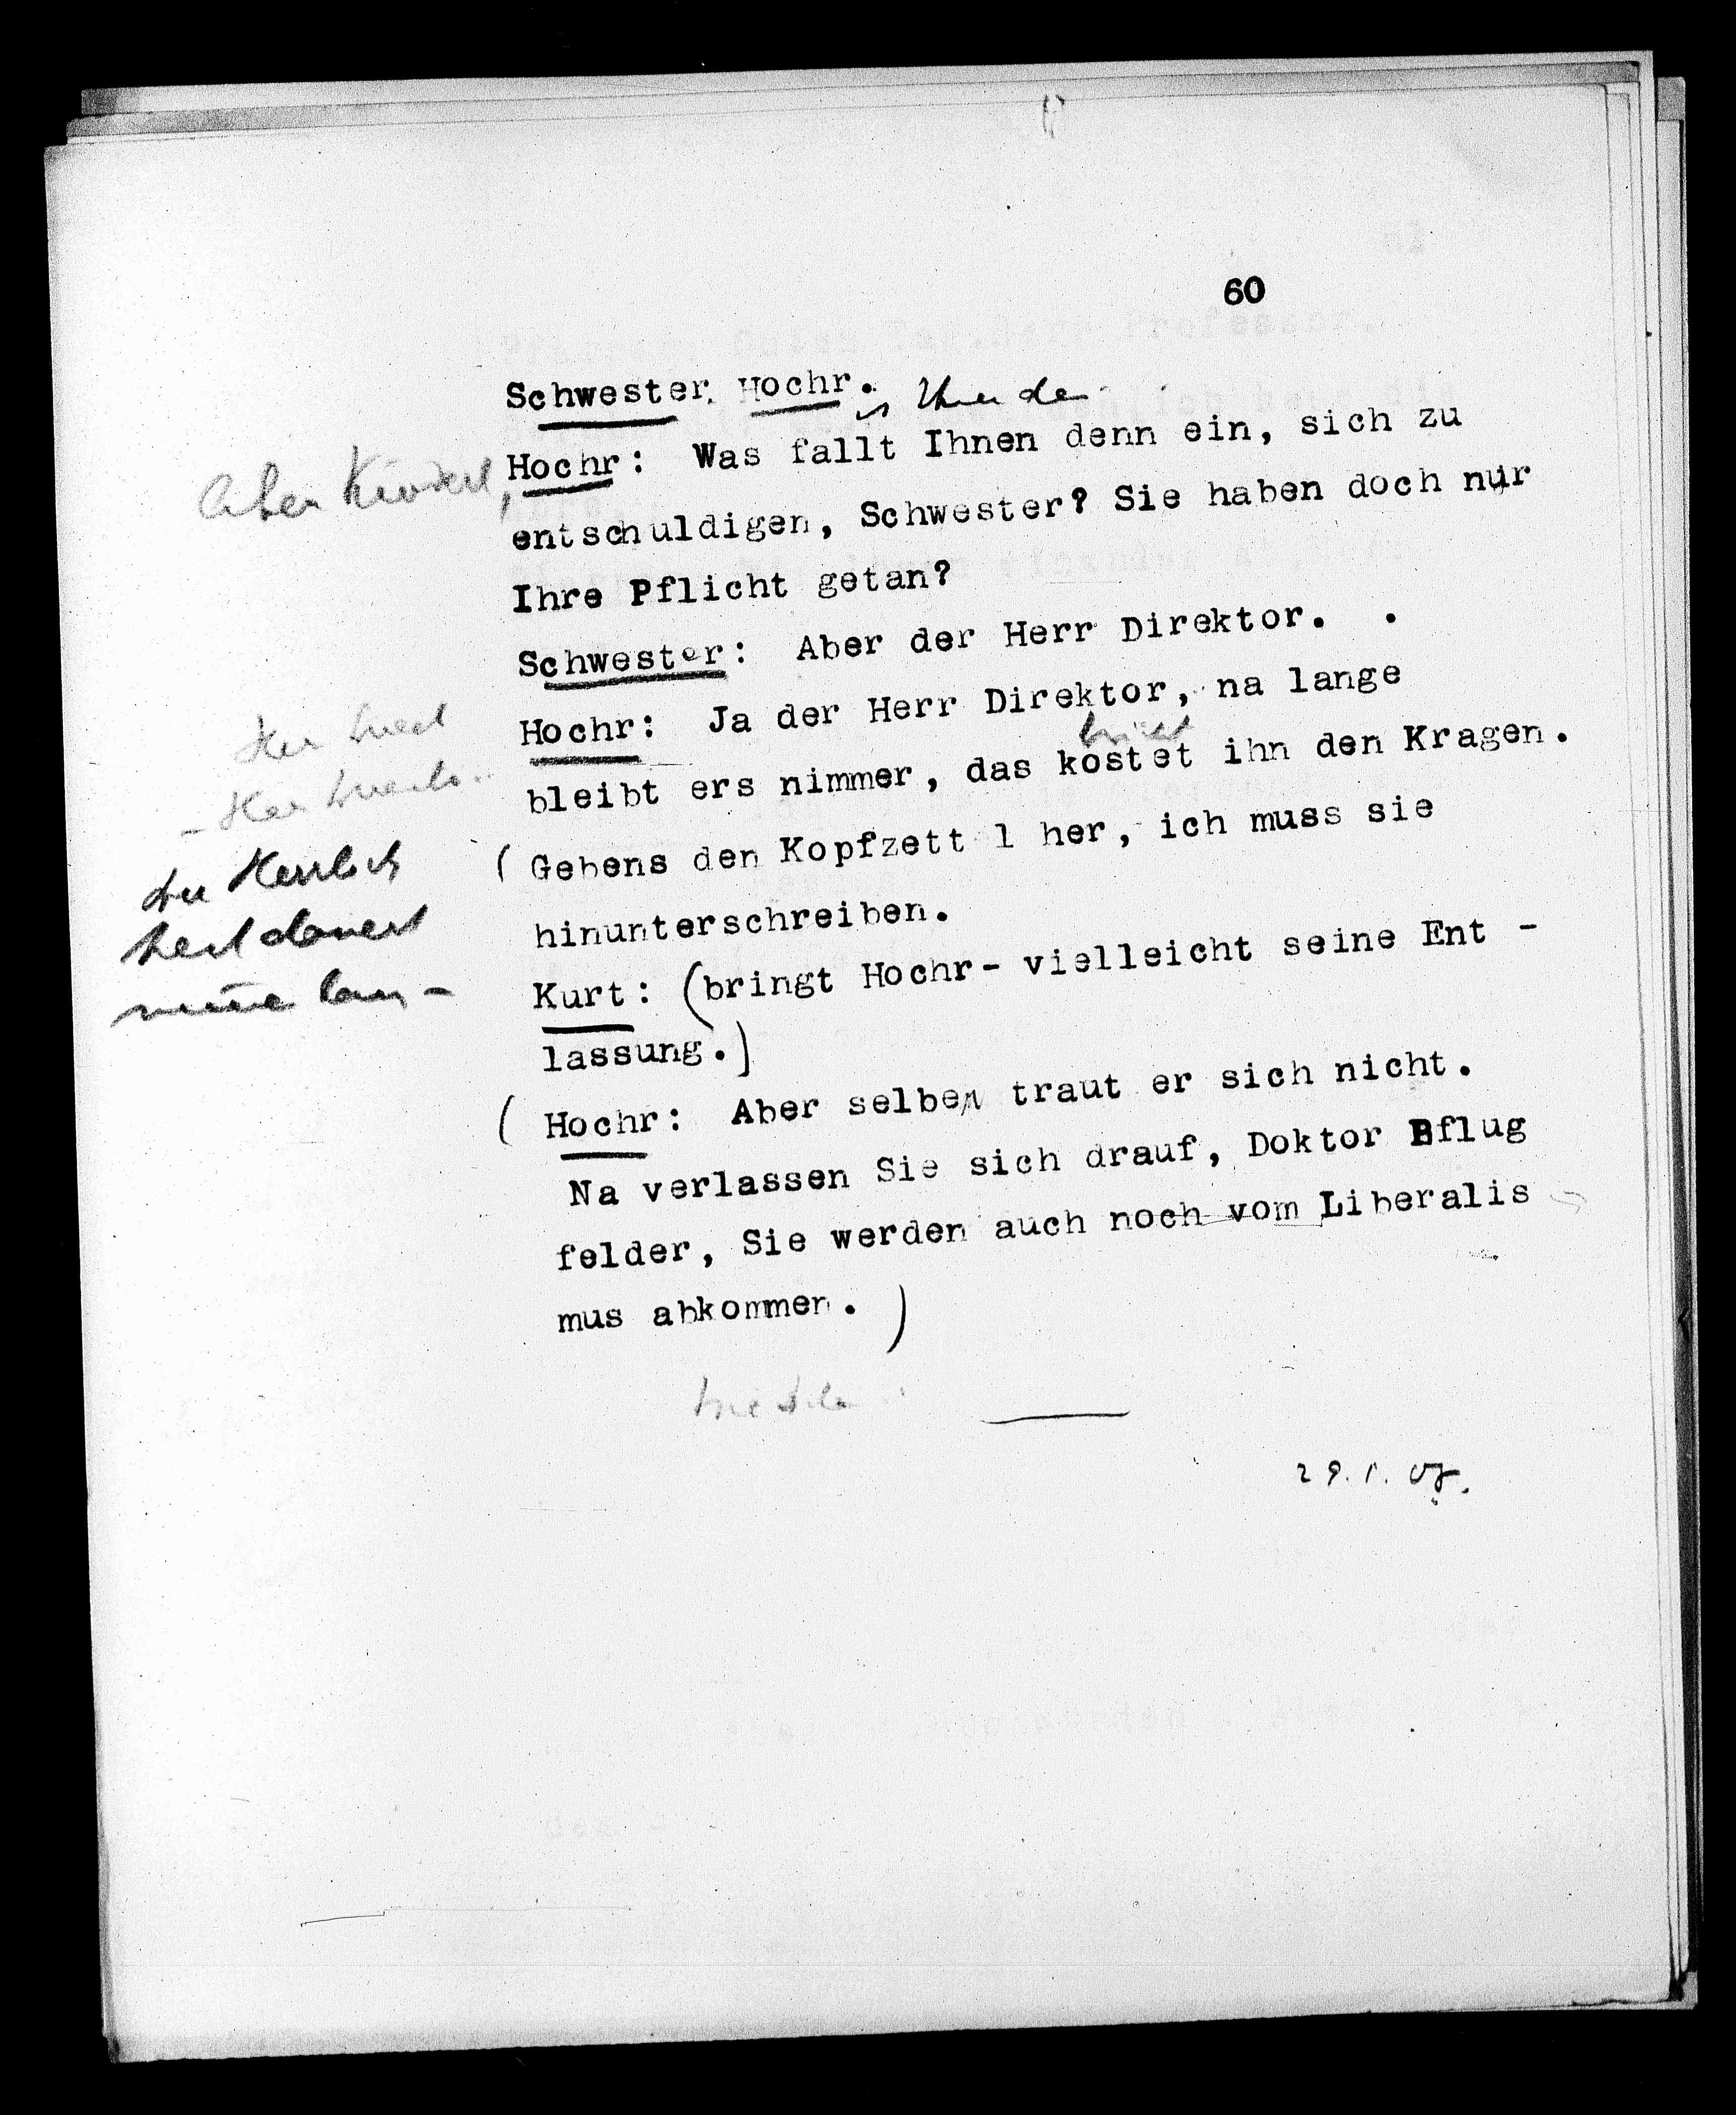 60
Schwester, Hochr.
Hochr: Was fallt Ihnen denn ein, sich zu
Aber Kinderl,
entschuldigen, Schwester? Sie haben doch nur
Ihre Pflicht getan?
Schwester: Aber der Herr Direktor. .
Hochr: Ja der Herr Direktor, na lange
bricht
bleibt ers nimmer, das kostet ihn den Kragen.
( Gebens den Kopfzett l her, ich muss sie
hinunterschreiben.
die Herrlich
keit dauert
Kurt: (bringt Hochr- vielleicht seine Ent -
lassung.)
( Hochr: Aber selben traut er sich nicht.
Na verlassen Sie sich drauf, Doktor Pflug
felder, Sie werden auch noch vom Liberalis
mus abkommen. )
29.1.07.